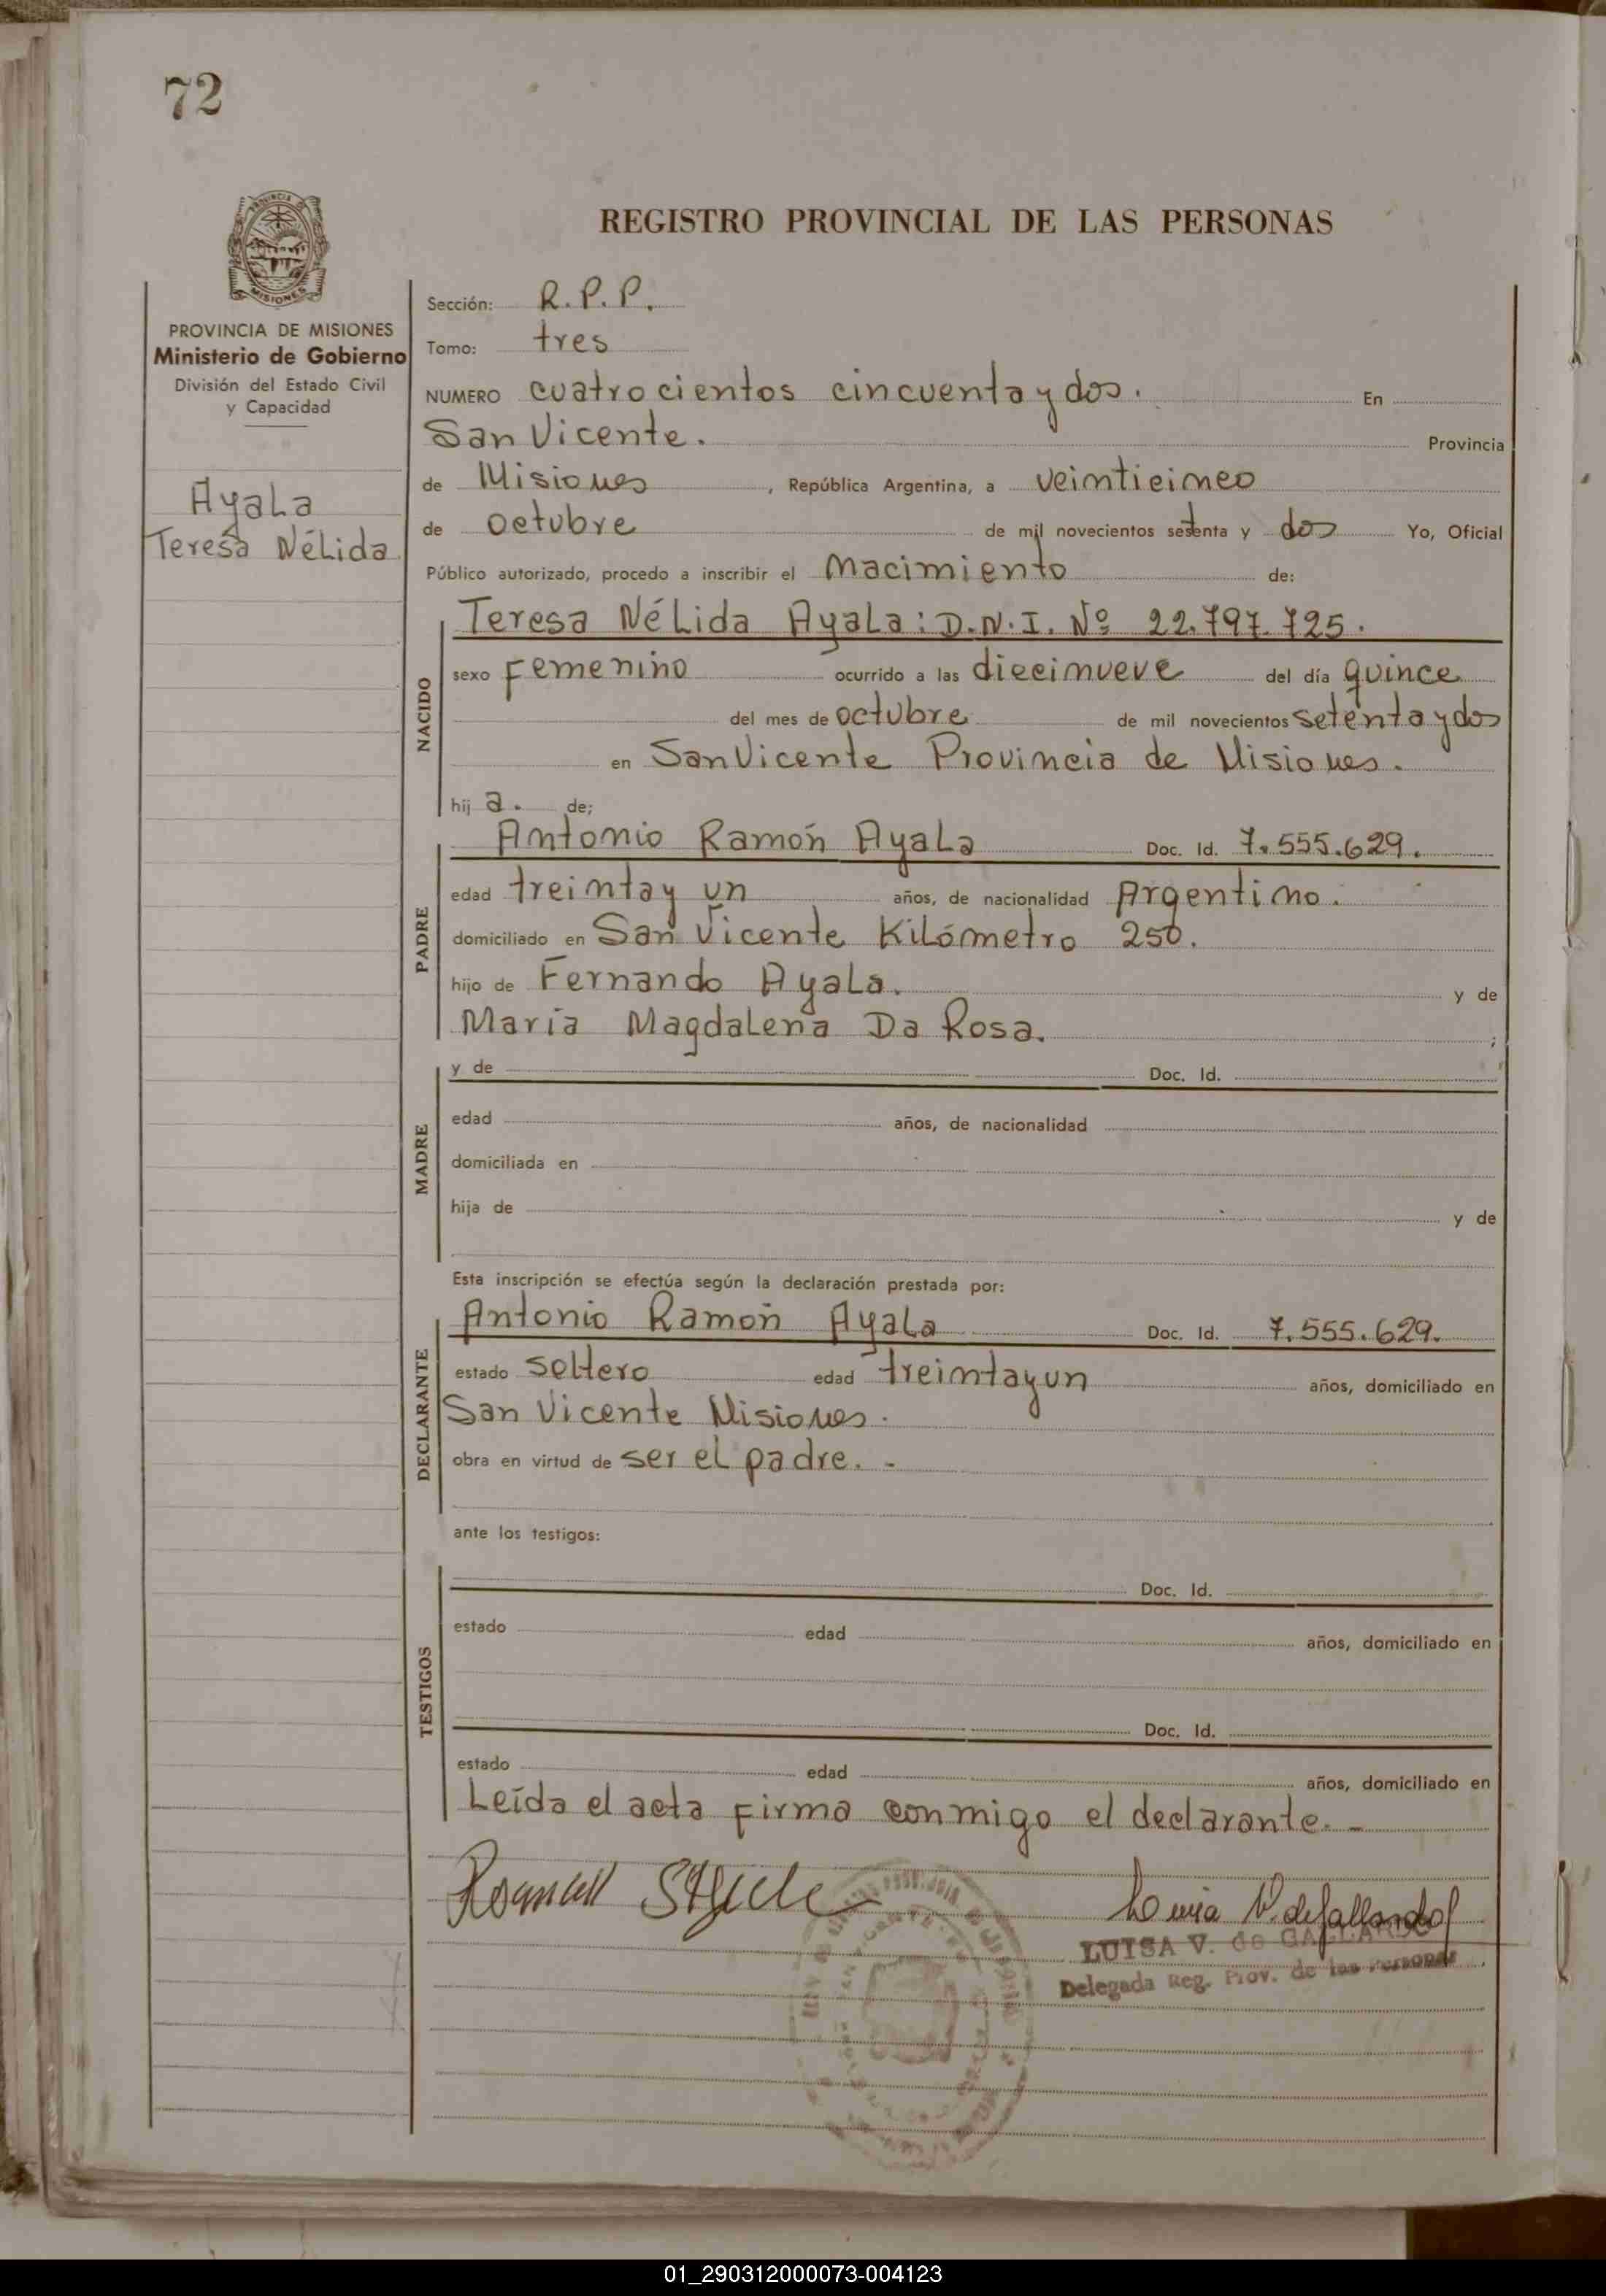 72
PROVINCIA
MISIONES
PROVINCIA DE MISIONES
Ministerio de Gobierno
División del Estado Civil
y Capacidad
Ayala
Teresa Nélida
REGISTRO PROVINCIAL DE LAS PERSONAS
Sección: R.P.P.
Tomo: tres
NUMERO cuatrocientos cincuenta y dos. En
San Vicente. Provincia
de Misiones, República Argentina, a veinticinco
de octubre de mil novecientos setenta y dos Yo, Oficial
Público autorizado, procedo a inscribir el nacimiento de:
NACIDO
Teresa Nélida Ayala: D.N.I. Nº 22.797.725.
sexo Femenino ocurrido a las diecinueve del día quince
del mes de octubre de mil novecientos setenta y dos
en San Vicente Provincia de Misiones.
hija. de;
PADRE
Antonio Ramón Ayala Doc. Id. 7.555.629.
edad treinta y un años, de nacionalidad Argentino.
domiciliado en San Vicente Kilómetro 250.
hijo de Fernando Ayala. y de
María Magdalena Da Rosa. ;
MADRE
y de Doc. Id.
edad años, de nacionalidad
domiciliada en
hija de y de
Esta inscripción se efectúa según la declaración prestada por:
DECLARANTE
Antonio Ramón Ayala Doc. Id. 7.555.629.
estado soltero edad treinta y un años, domiciliado en
San Vicente Misiones.
obra en virtud de ser el padre. -
ante los testigos:
TESTIGOS
Doc. Id.
estado edad años, domiciliado en
Doc. Id.
estado edad años, domiciliado en
Leída el acta firma conmigo el declarante. -
Luisa V. de Gallardo
LUISA V. de GALLARDO
Delegada Reg. Prov. de las Personas
01_290312000073-004123